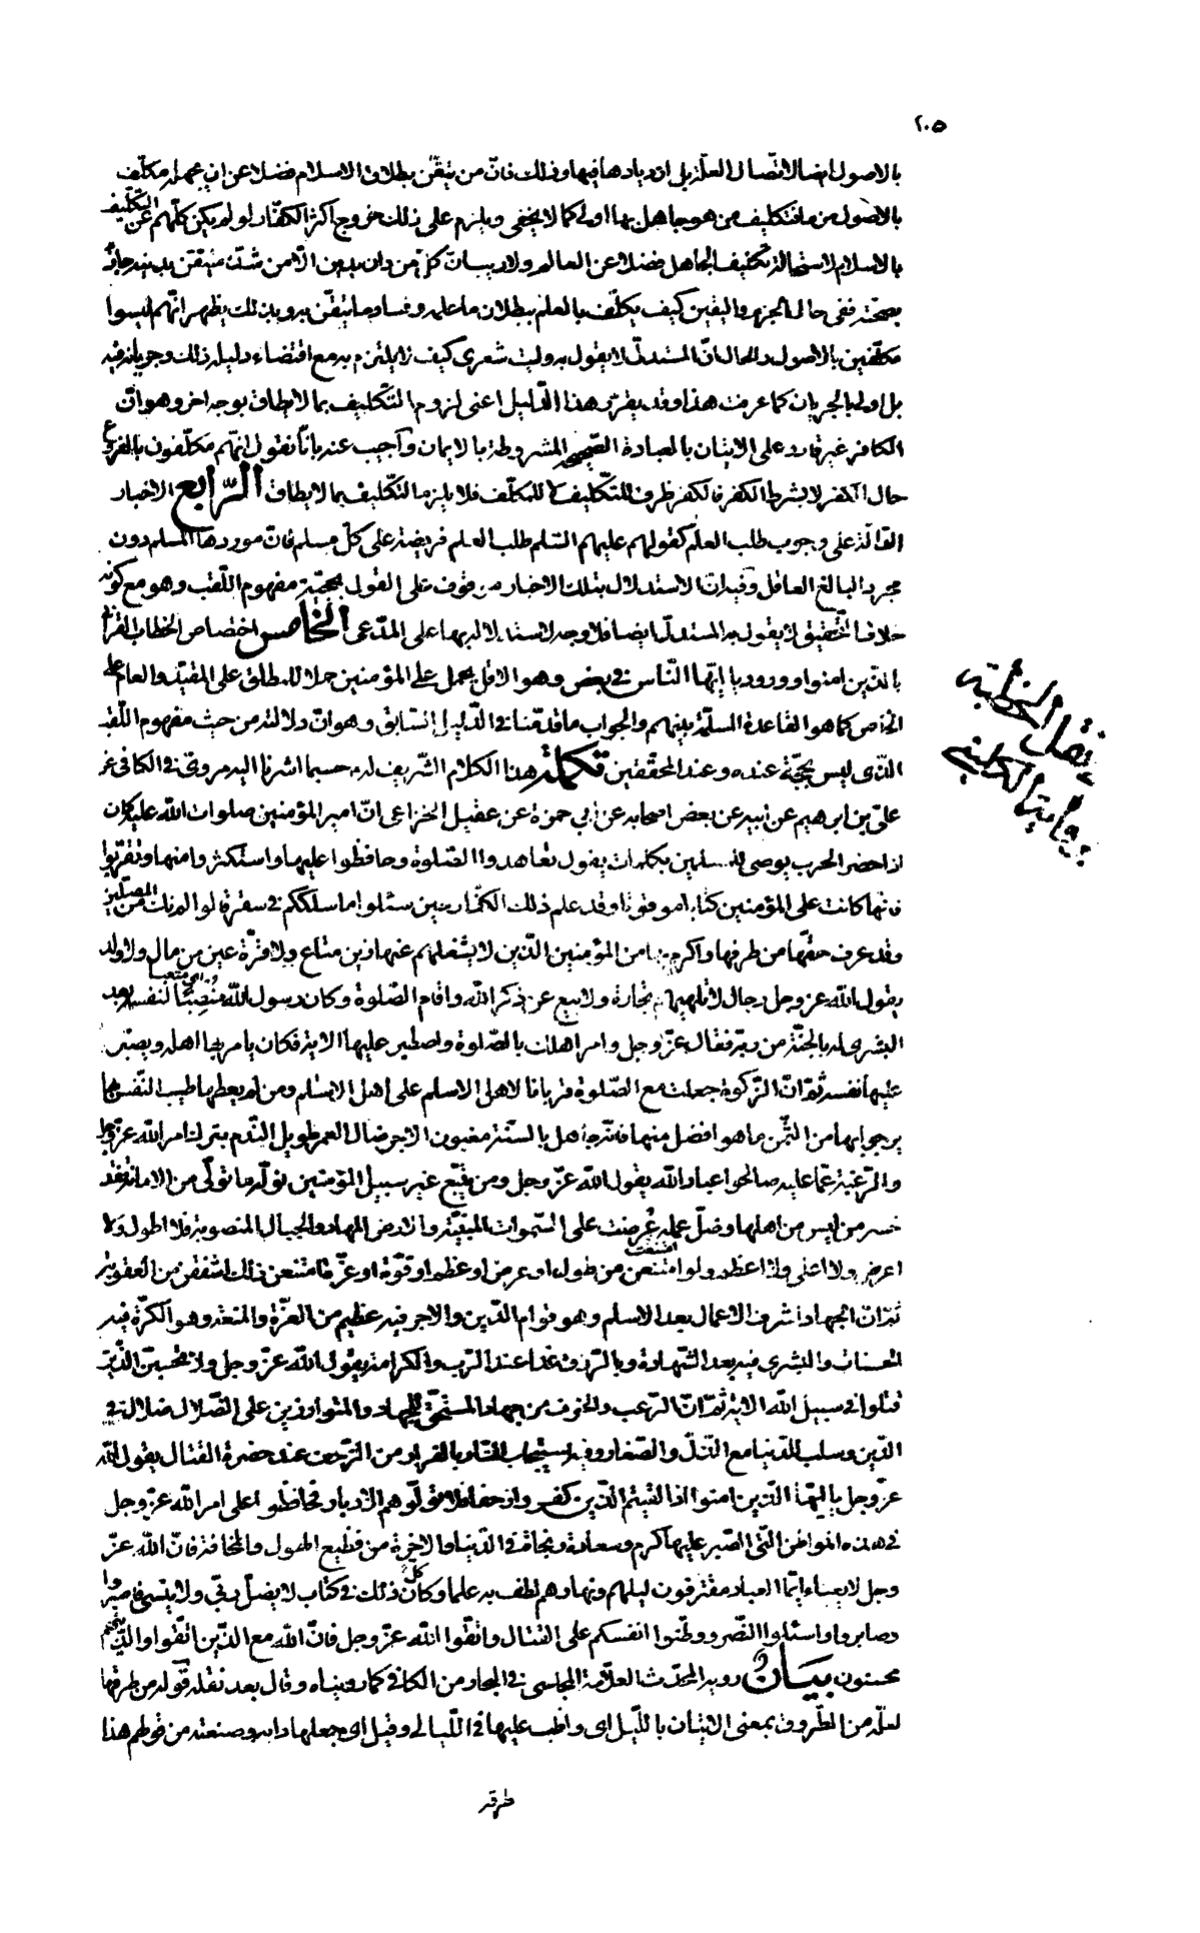 ٢٠٥
بالاصول ايضا لاتّصال العلّة بل ازديادها فيها وذلك فانّ من تيقّن بطلان الاسلام فضلا عن ان يجهله مكلّف
بالاصول من مافتكليف من هو جاهل بها اولى كما لا يخفى ويلزم على ذلك خروج اكثر الكفّار لو لم يكن كلّهم عن التّكليف
بالاسلام لاستحالة تكليف الجاهل فضلا عن العالم ولا ريب انّ كلّ من دان بدين الّا من شذّ متيقّن بدينه جازم
بصحّته ففى حال الجزم واليقين كيف يكلّف بالعلم ببطلان ما علمه وفساد ما يتيقّن به وبذلك يظهر انّهم ليسوا
مكلّفين بالاصول والحال انّ المستدلّ لا يقول به وليت شعرى كيف زايلتزم به مع اقتضاء دليله ذلك وجريانه فيه
بل اولى بالجريان كما عرفت هذا وقد يقرّر هذا الدّليل اعنى لزوم التّكليف بما لا يطاق بوجه اخر وهو انّ
الكافر غير قادر على الاتيان بالعبادة الصّحيحة المشروطة بالايمان واجيب عنه بانّا نقول انّهم مكلّفون بالفروع
حال الكفر لا بشرط الكفر فالكفر ظرف للتّكليف لا للمكلّف فلا يلزم التكليف بما لا يطاق الرّابع الاخبار
الدّالة على وجوب طلب العلم كقولهم عليهم السّلم طلب العلم فريضة على كلّ مسلم فانّ موردها المسلم دون
مجرد البالغ العاقل وفيه انّ الاستدلال بتلك الاخبار موقوف على القول بحجيّة مفهوم اللّقب وهو مع كونه
خلاف التّحقيق لا يقول به المستدلّ ايضا فلا وجه لاستناده اليها على المدّعى الخامس اختصاص الخطاب القرآنى
بالّذين امنوا وورود يا ايّها النّاس فى بعض وهو الاقل يحمل على المؤمنين حملا للمطلق على المقيّد والعام على
الخاص كما هو القاعدة المسلّمة بينهم والجواب ما قدّمنا فى الدّليل السّابق وهو انّ دلالته من حيث مفهوم اللّقب
الّذى ليس بحجّة عنده وعند المحقّقين تكملة هذا الكلام الشّريف له حسبما اشرنا اليه مروىّ فى الكافى عن
علىّ بن ابرهيم عن ابيه عن بعض اصحابه عن ابي حمزة عن عقيل الخزاعى انّ امير المؤمنين صلوات الله عليه كان
اذا حضر الحرب يوصى للمسلمين بكلمات يقول تعاهدوا الصّلوة وحافظوا عليها واستكثروا منها وتقرّبوا
فانها كانت على المؤمنين كتابا موقوتا وقد علم ذلك الكفّار حين سئلوا ما سلككم فى سقر قالوا لم نك من المصلّين
وقد عرف حقّها من طرقها واكرم بها من المؤمنين الّذين لا يشغلهم عنها زين متاع ولا قرّة عين من مال ولا ولد
يقول الله عز وجل رجال لا تلهيهم تجارة ولا بيع عن ذكر الله واقام الصّلوة وكان رسول الله منصبًا لنفسه بعد
البشرى له بالجنّة من ربّه فقال عزّ وجل وامر اهلك بالصّلوة واصطبر عليها الاية فكان يامر بها اهله ويصبّر
عليها نفسه ثمّ انّ الزّكوة جعلت مع الصّلوة قربانا لاهل الاسلم على اهل الاسلم ومن لم يعطها طيّب النّفس بها
يرجو بها من الثّمن ما هو افضل منها فانّه جاهل بالسنّة مغبون الاجر ضال العمر طويل النّدم بترك امر الله عزّ وجلّ
والرّغبة عمّا عليه صالحوا عباد الله يقول الله عزّ وجل ومن يتّبع غير سبيل المؤمنين نولّه ما تولّى من الامانة فقد
خسر من ليس من اهلها وضلّ عمله عُرضت على السّموات المبنيّة والارض المهاد والجبال المنصوبة فلا اطول ولا
اعرض ولا اعلى ولا اعظم ولو امتنعن من طول او عرض او عظم او قوّة او عزّة امتنعن ذلك اشفقن من العقوبة
ثمّ انّ الجهاد اشرف الاعمال بعد الاسلم وهو قوام الدّين والاجر فيه عظيم من العزّة والمنعة وهو الكرّة فيه
الحسنات والبشرى فيه بعد الشّهادة وبالرّزق غدا عند الرّب والكرامة يقول الله عزّ وجل ولا تحسبنّ الّذين
قتلوا فى سبيل الله الاية ثمّ انّ الرّعب والخوف من جهاد المستحقّ للجهاد والمتوازرين على الضّلال ضلال فى
الدّين وسلب للدّنيا مع الذّلّ والصّغار وفيه استيجاب النّار بالفرار من الزّحف عند حضرة القتال يقول الله
عزّ وجل يا ايّها الّذين امنوا اذا لقيتم الّذين كفروا زحفا فلا تولّوهم الادبار فحافظوا على امر الله عزّ وجل
فى هذه المواطن الّتى الصّبر عليها كرم وسعادة ونجاة فى الدّنيا والاخرة من فظيع الهول والمخافة فانّ الله عزّ
وجل لا يعباء بما العباد مقترفون ليلهم ونهارهم لطف به علما وكلّ ذلك فى كتاب لا يضلّ ربّى ولا ينسى فاصبروا
وصابروا واسئلوا النّصر ووطّنوا انفسكم على القتال واتّقوا الله عزّ وجل فانّ الله مع الّذين اتّقوا والّذين هم
محسنون بيان رويه المحدّث العلّامة المجلسى فى البحار من الكافى كما رويناه وقال بعد نقله قوله من طرقها
لعلّه من الطّروق بمعنى الاتيان باللّيل اى واظب عليها فى اللّيالى وقيل اى جعلها دابه وصنعته من قولهم هذا
طرقة
نقل الخطبة
برواية الكلينى